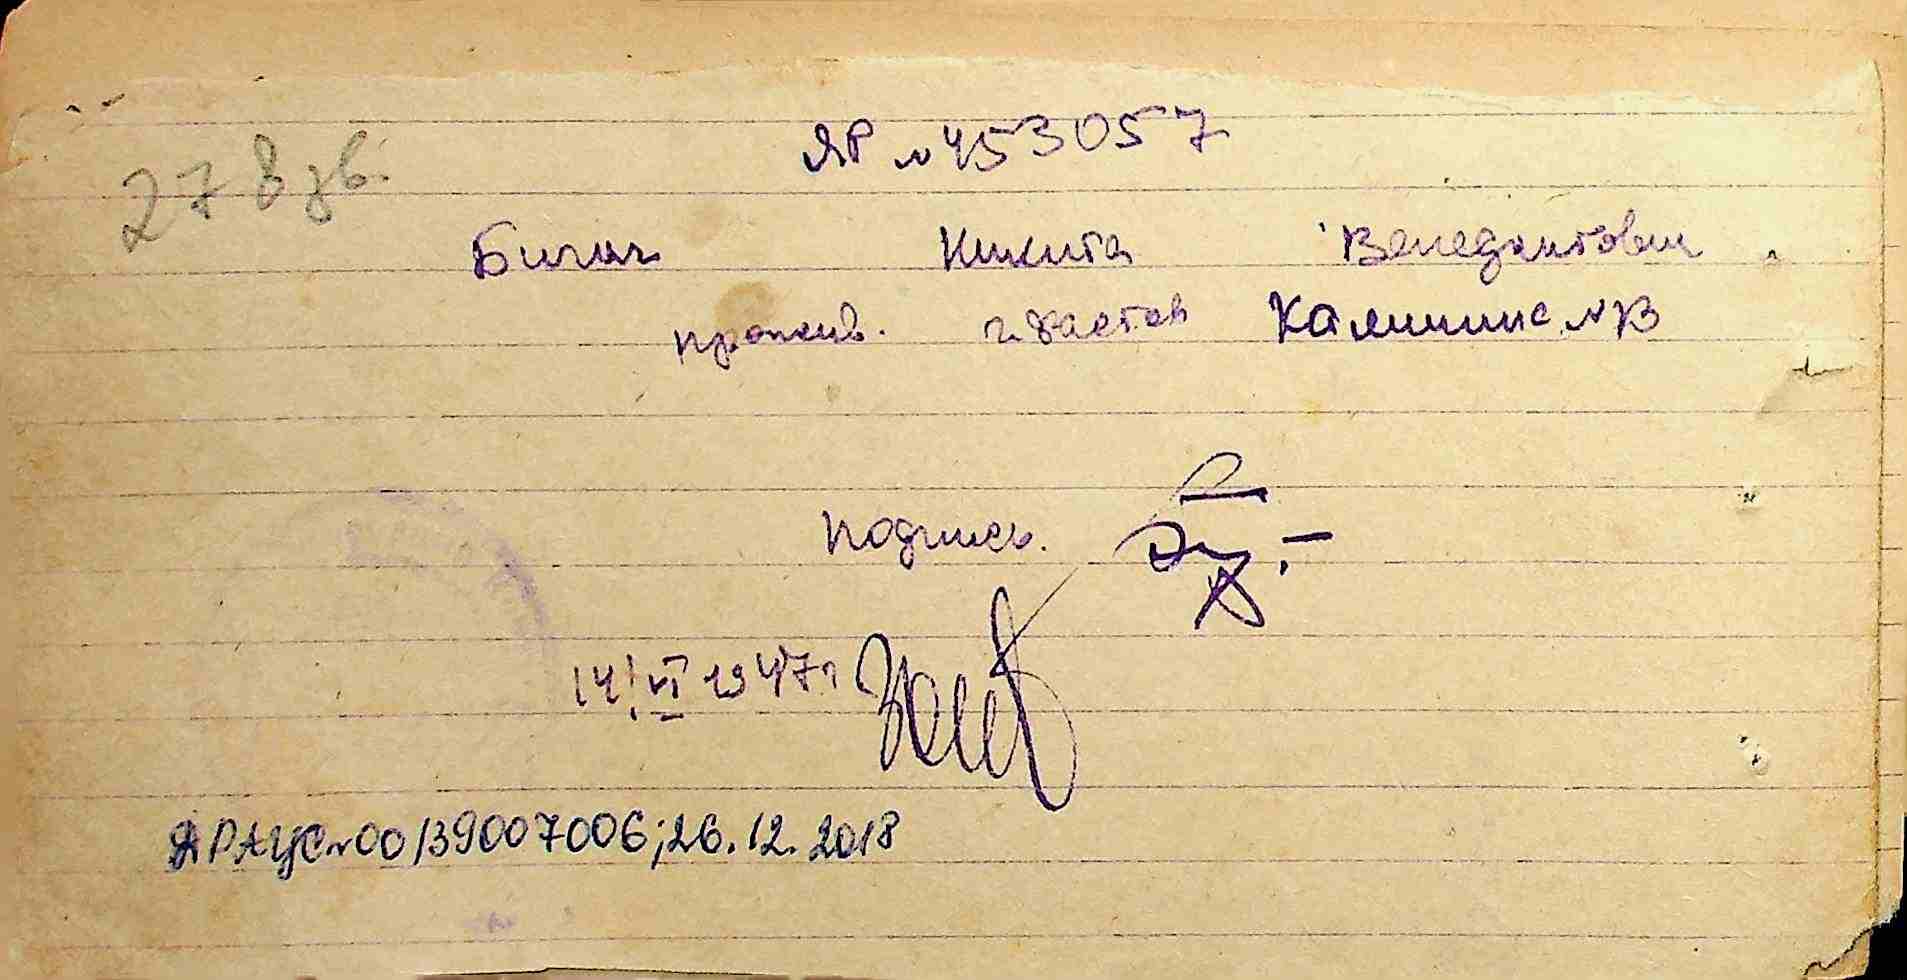 ЯР № 453057
278 зв.
Бигач Никита Венедиктович
прожив. г. Фастов Калинина № 13
подпись.
14/VI 1947 г
ЯРАЦС № 00139007006; 26.12.2018